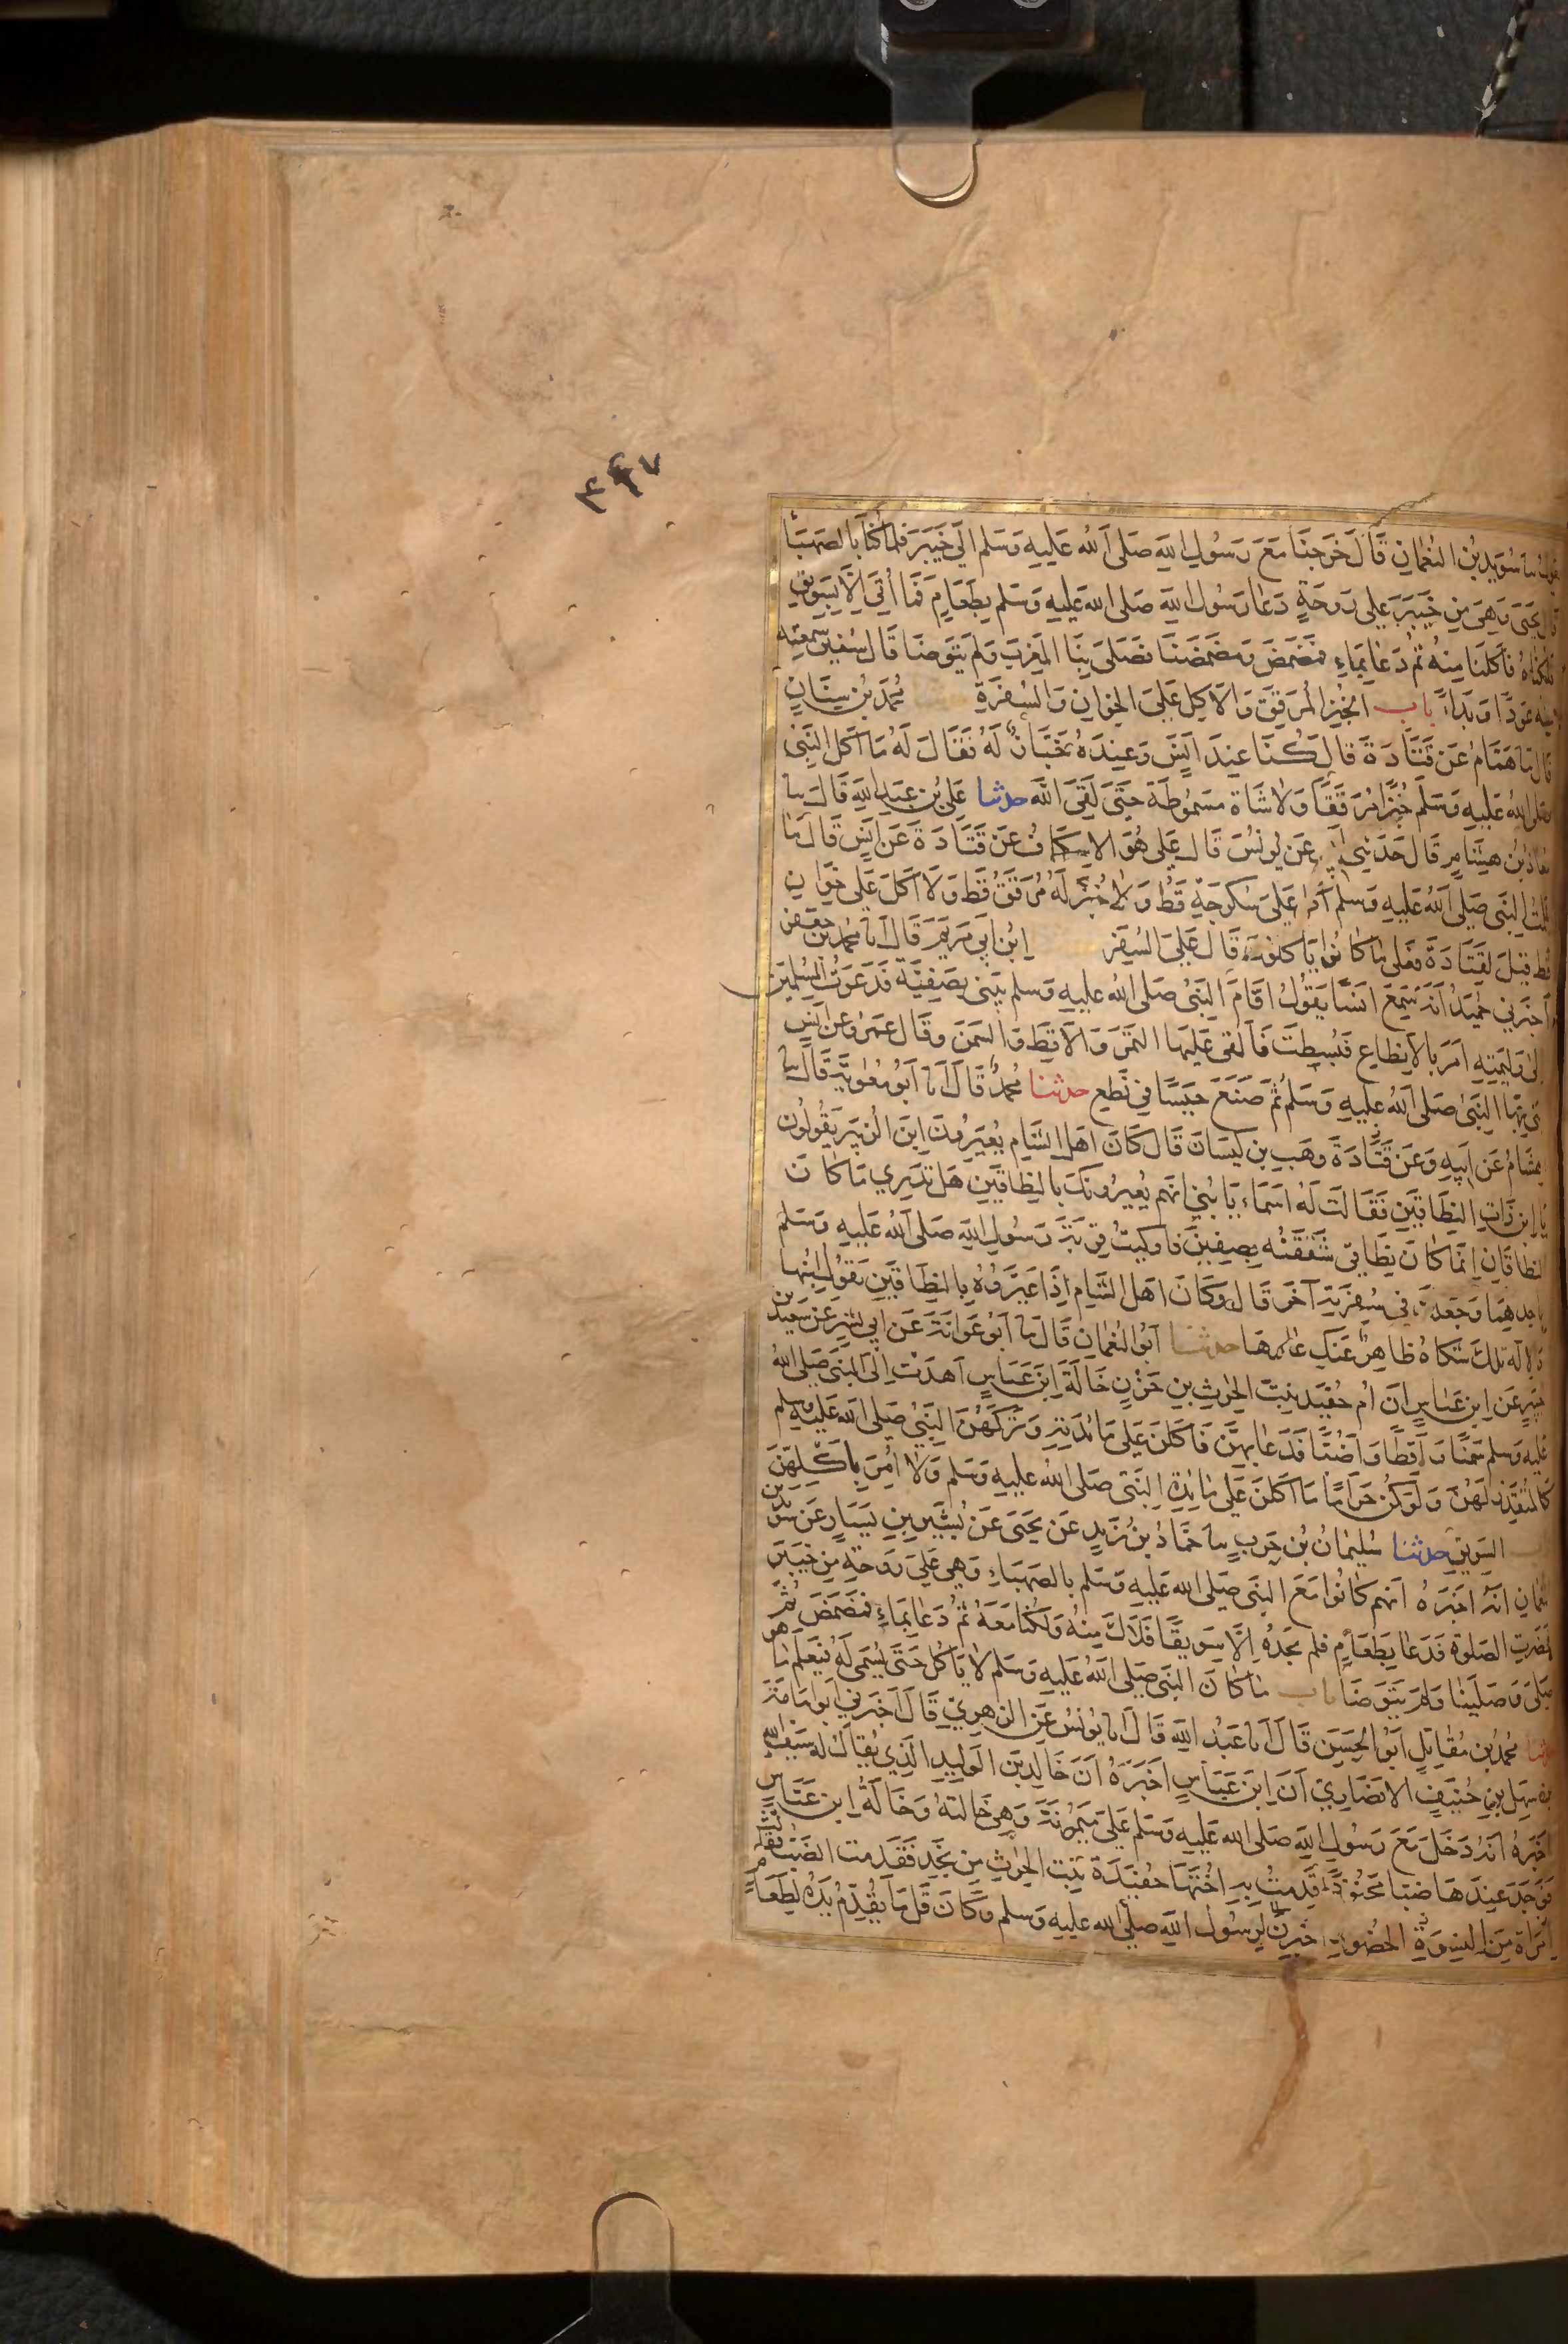 ٣٤٧
سويد بن النعمان قال خرجنا مع رسول الله صلى الله عليه وسلم الى خيبر فلما كنا بالصهبا
قال يحيى وهي من خيبر على روحة دعا رسول الله صلى الله عليه وسلم بطعام فما أتي الا بسويق
فلكناه فأكلنا منه ثم دعا بماء فمضمض ومضمضنا فصلى بنا المغرب ولم يتوضا قال سفين سمعته
منه عودا وبداء باب الخبز المرقق والاكل على الخوان والسفرة محمد بن سنان
قال نا همام عن قتادة قال كنا عند انس وعنده خباز له فقال له ما اكل النبي
صلى الله عليه وسلم خبزا مرققا ولا شاة مسموطة حتى لقي الله حدثنا علي بن عبد الله قال نا
معاذ بن هشام قال حدثني ابي عن يونس قال علي هو الاسكاف عن قتادة عن انس قال ما
علمت النبي صلى الله عليه وسلم اكل على سكرجة قط ولا خبز له مرقق قط ولا اكل على خوان
قط قيل لقتادة فعلى ما كانوا ياكلون قال على السفر ابن ابي مريم قال انا محمد بن جعفر
اخبرني حميد انه سمع انسا يقول اقام النبي صلى الله عليه وسلم يبني بصفية فدعوت المسلمين
الى وليمته امر بالانطاع فبسطت فالقي عليها التمر والاقط والسمن وقال عمرو عن انس
بنى بها النبي صلى الله عليه وسلم ثم صنع حيسا في نطع حدثنا محمد قال انا ابو معوية قال نا
هشام عن ابيه وعن قتادة وهب بن كيسان قال كان اهل الشام يعيرون ابن الزبير يقولون
يا ابن ذات النطاقين فقالت له اسماء يا بني انهم يعيرونك بالنطاقين هل تدري ما كان
النطاقان انما كان نطاقي شققته بصفين فاوكيت قربة رسول الله صلى الله عليه وسلم
باحدهما وجعلت في سفرته آخر قال وكان اهل الشام اذا عيروه بالنطاقين يقول ابنها
والاله تلك شكاة ظاهر عنك عارها حدثنا ابو النعمان قال نا ابو عوانة عن ابي بشر عن سعيد بن
جبير عن ابن عباس ان ام حفيد بنت الحرث بن حزن خالة ابن عباس اهدت الى النبي صلى الله
عليه وسلم سمنا واقطا واضبا فدعا بهن فاكلن على مائدته وتركهن النبي صلى الله عليه وسلم
كالمتقذر لهن ولو كن حراما ما اكلن على مائدة النبي صلى الله عليه وسلم ولا امر باكلهن
باب السويق حدثنا سليمان بن حرب نا حماد بن زيد عن يحيى عن بشير بن يسار عن سويد بن
النعمان انه اخبره انهم كانوا مع النبي صلى الله عليه وسلم بالصهباء وهي على روحة من خيبر
فحضرت الصلوة فدعا بطعام فلم يجده الا سويقا فلاك منه ولكنا معه ثم دعا بماء فمضمض ثم
صلى وصلينا ولم يتوضا باب ما كان النبي صلى الله عليه وسلم لا ياكل حتى يسمى له فيعلم ما هو
حدثنا محمد بن مقاتل ابو الحسن قال انا عبد الله قال انا يونس عن الزهري قال اخبرني ابو امامة
بن سهل بن حنيف الانصاري ان ابن عباس اخبره ان خالد بن الوليد الذي يقال له سيف الله
اخبره انه دخل مع رسول الله صلى الله عليه وسلم على ميمونة وهي خالته وخالة ابن عباس
فوجد عندها ضبا محنوذا قدمت به اختها حفيدة بنت الحرث من نجد فقدمت الضب فقالت
امراة من النسوة الحضور اخبرن رسول الله صلى الله عليه وسلم وكان قل ما يقدم يده لطعام